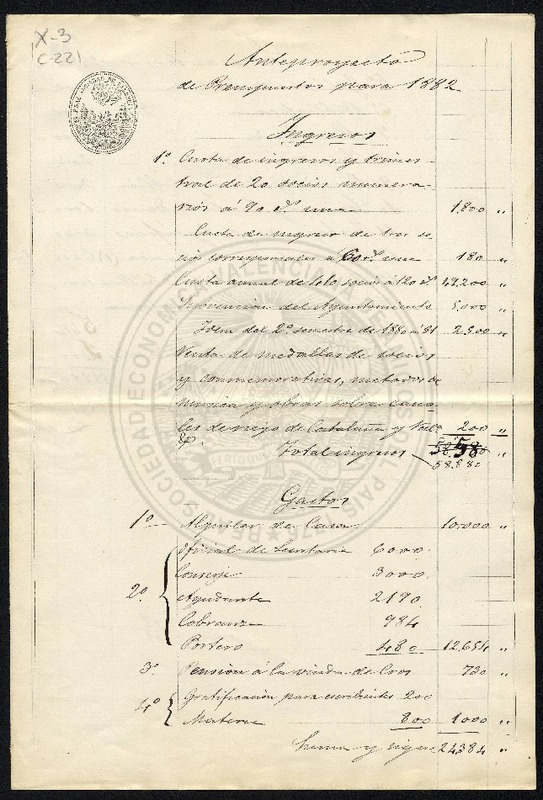 X-3
C-221
Anteproyecto
de Presupuestos para 1882
Ingresos
1º Cuota de ingresos y trimes
tral de 20 socios numera-
rios á 90 rs. una 1,800 "
Cuota de ingreso de tres so
cios corresponsales á 60 rs. una 180 "
Cuota anual de 410 socios á 120 rs. 49,200 "
Subvención del Ayuntamiento 5,000 "
Idem del 2º semestre de 1880 a 81 2,500 "
Venta de medallas de socios
y conmemorativas, metodos de
musica y obras sobre cana
les de riego de Cataluña y 200 "
Total ingresos 58.880 "
58.880
Gastos
1º Alquiler de Casa 10.000 "
2º Oficial de Secretaria 6000
Conserje 3000
Ayudante 2190
Cobranza 984
Portero 480 12,654 "
3º Pensión á la viuda de Cros 730 "
4º Gratificación para escribientes 200
Materia 800 1000 "
Suma y sigue 24384 "
REAL SOCIEDAD ECONOMICA VALENCIA PAIS